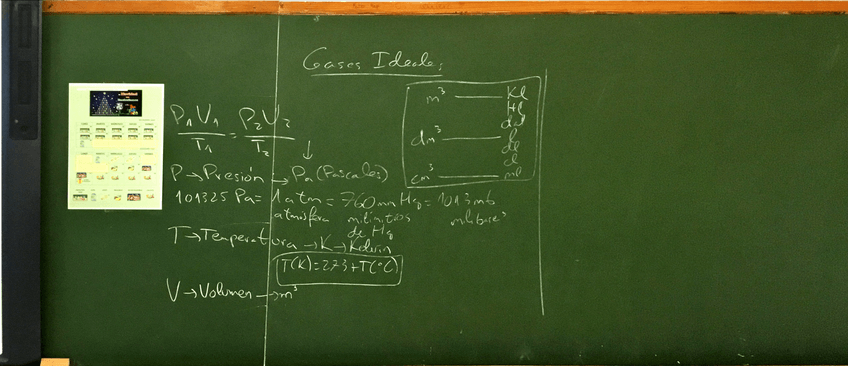 Gases Ideales
P₁V₁/T₁ = P₂V₂/T₂
P → Presión → Pa (Pascales)
101325 Pa = 1 atm = 760 mm Hg = 1013 mb
atmósfera milímitros milibares
de Hg
T → Temperatura → K → Kelvin
T(K) = 273 + T(°C)
V → Volumen → m³
m³ — Kl
Hl
dal
dm³ — l
dl
cl
cm³ — ml